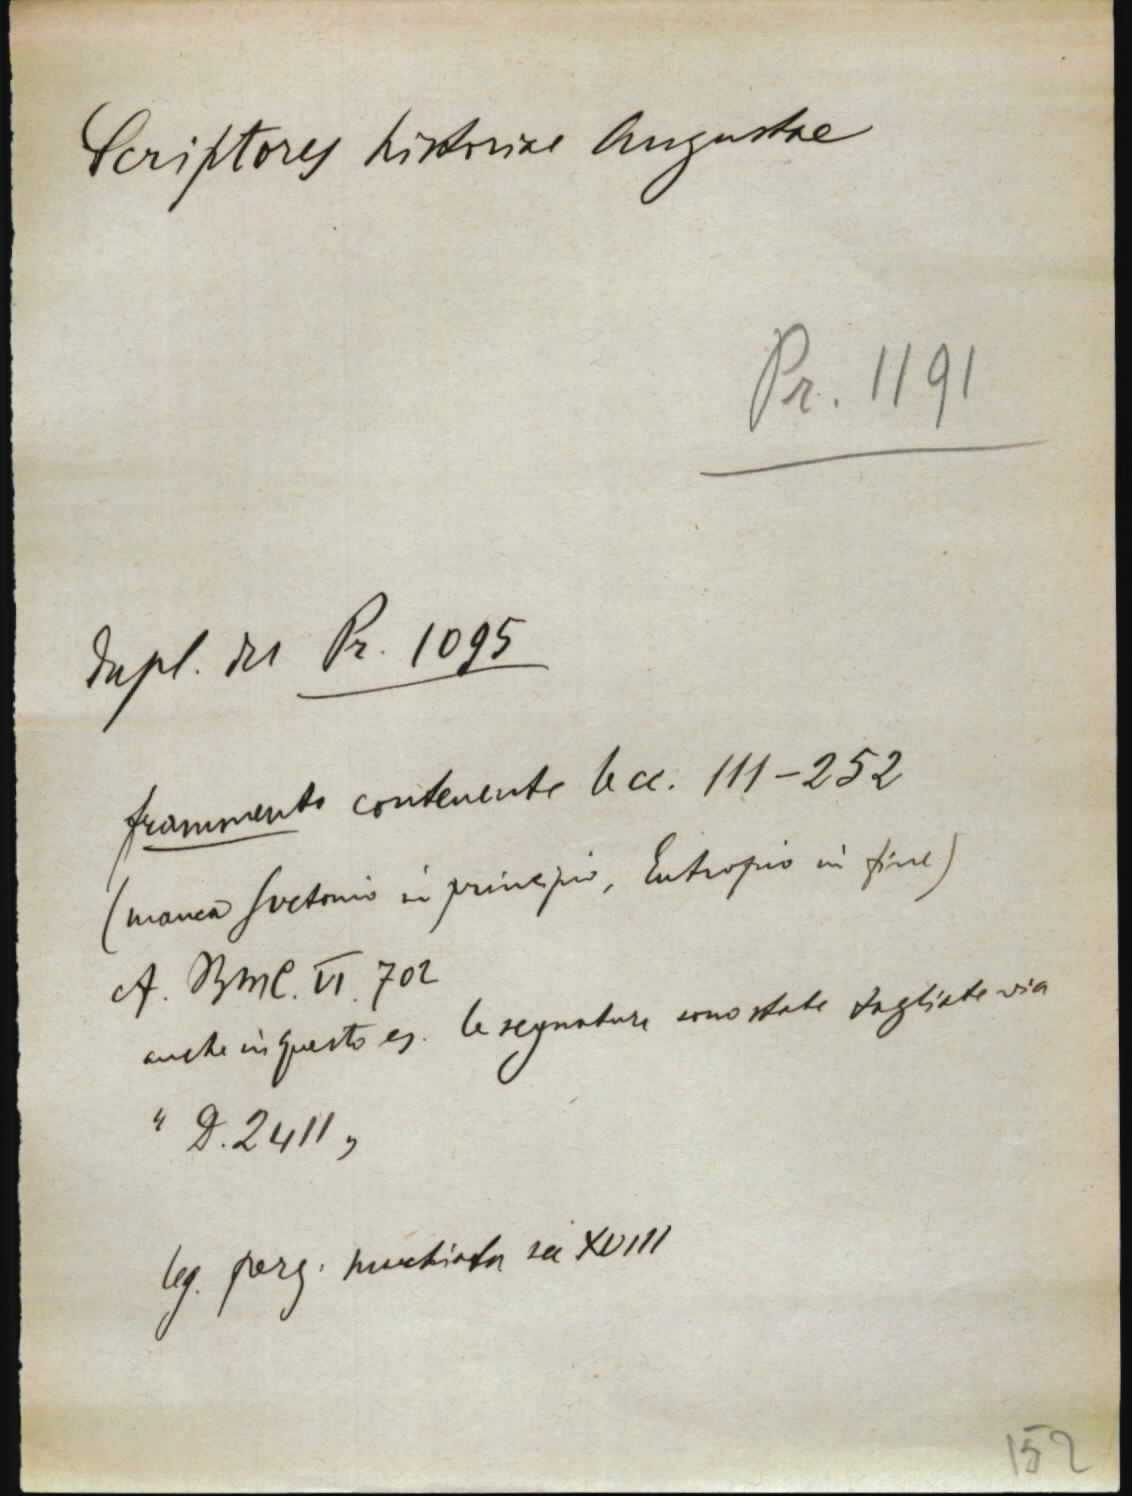 Scriptores historiae Augustae
Pr. 1191
dupl. del Pr. 1095
frammento contenente le cc. 111-252
(manca Svetonio in principio, Eutropio in fine)
cf. BMC. VI. 702
anche in questo es. le segnature sono state tagliate via
"D. 2411"
leg. perg. macchiata sec XVIII
152